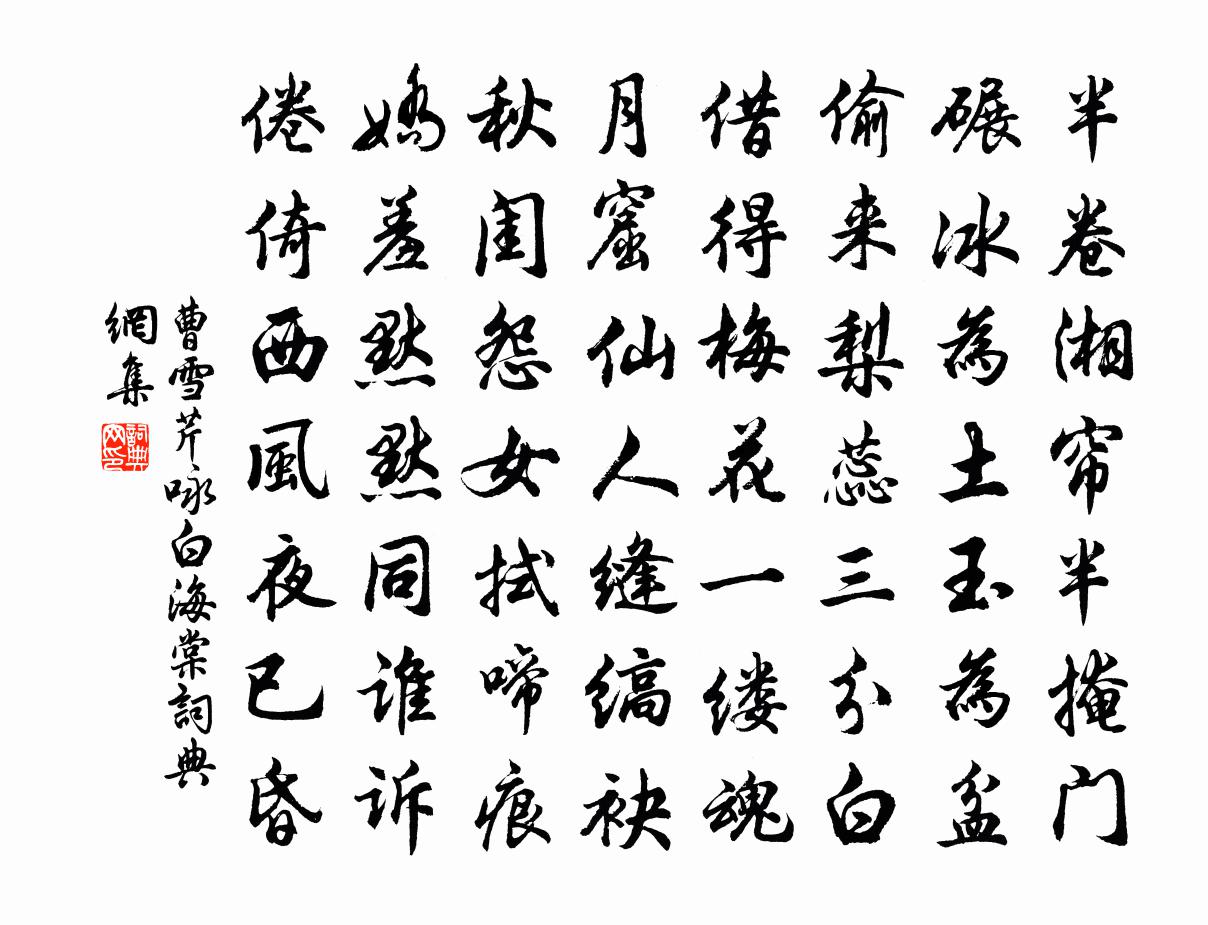 半卷湘帘半掩门
碾冰為土玉為盆
偷来梨蕊三分白
借得梅花一缕魂
月窟仙人缝缟袂
秋闺怨女拭啼痕
嬌羞默默同谁诉
倦倚西風夜已昏
曹雪芹咏白海棠詞典
網集
詞典网印